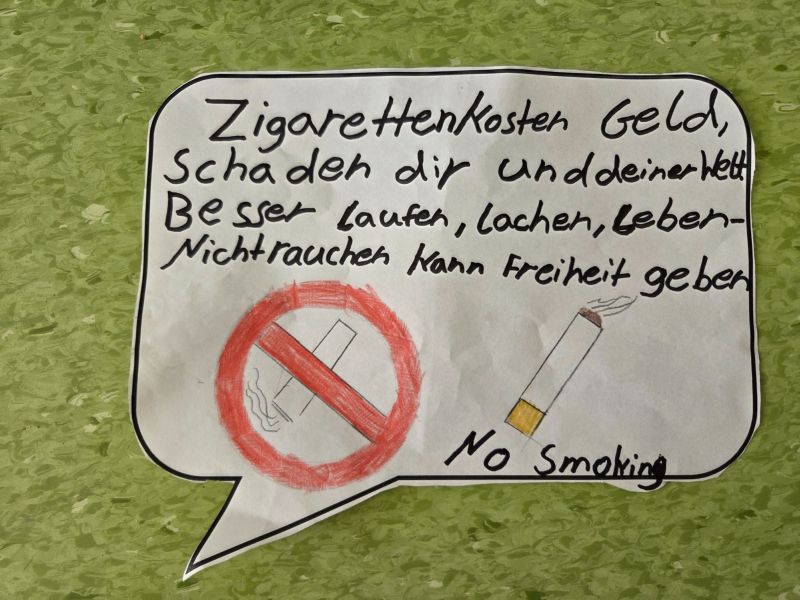 Zigarettenkosten Geld,
Schaden dir und deiner Welt
Besser Laufen, Lachen, Leben-
Nichtrauchen kann Freiheit geben
No Smoking